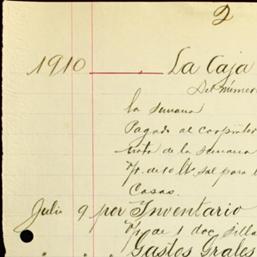 2
1910 La Caja
Del número
la semana
Pagado al carpintero
resto de la semana
V/p. de 10 lbs. sal para l
Casas.
Julio 9 por Inventario
V/p de 1 doc. silla
Gastos Grales